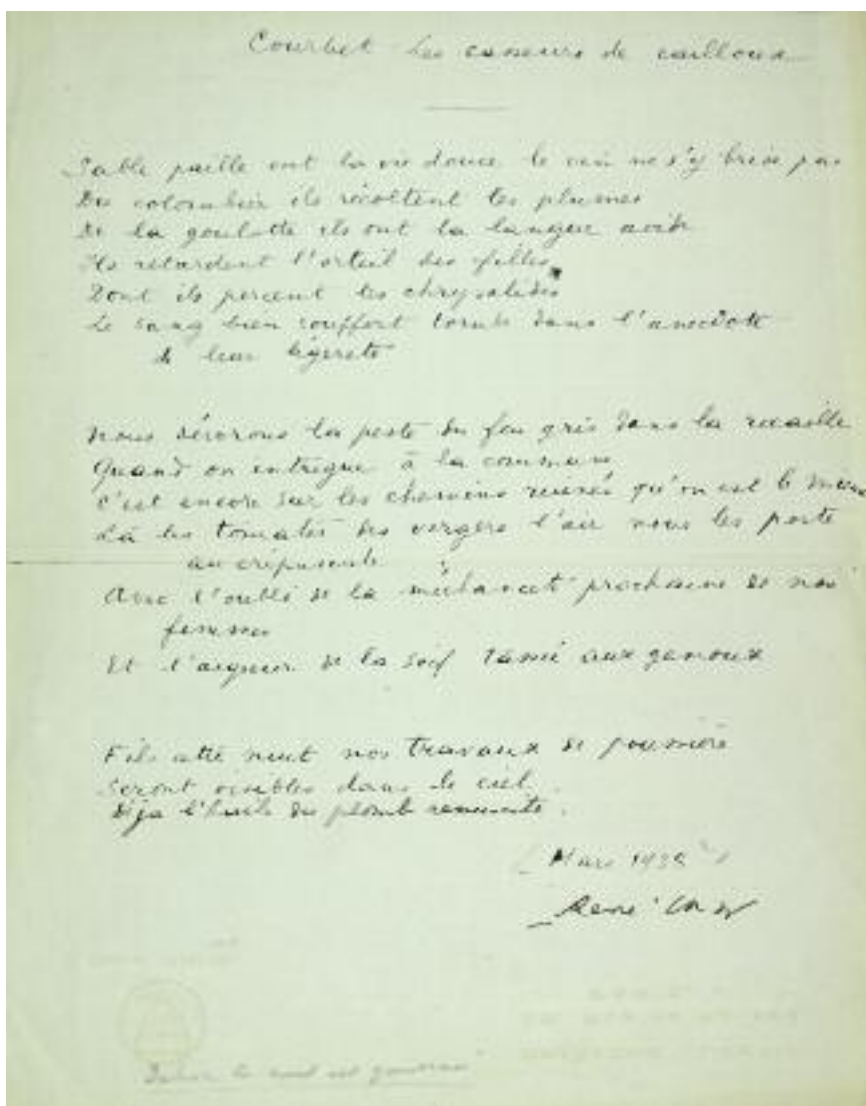 Courbet Les casseurs de cailloux
Sable paille ont la vie douce le vin ne s'y brise pas
Du colombier ils récoltent les plumes
De la goulotte ils ont la langue avide
Ils retardent l'orteil des filles
Dont ils percent les chrysalides
Le sang bien souffert tombe dans l'anecdote
de leur légèreté
Nous dévorons la peste du feu gris dans la rocaille
Quand on intrigue à la commune
C'est encore sur les chemins ruinés qu'on est le mieux
Là les tomates des vergers l'air nous les porte
au crépuscule
Avec l'oubli de la méchanceté prochaine de nos
femmes
Et l'aigreur de la soif tassée aux genoux
Fils cette nuit nos travaux de poussière
Seront visibles dans le ciel
Déjà l'huile du plomb ressuscite.
(Mars 1938)
René Char